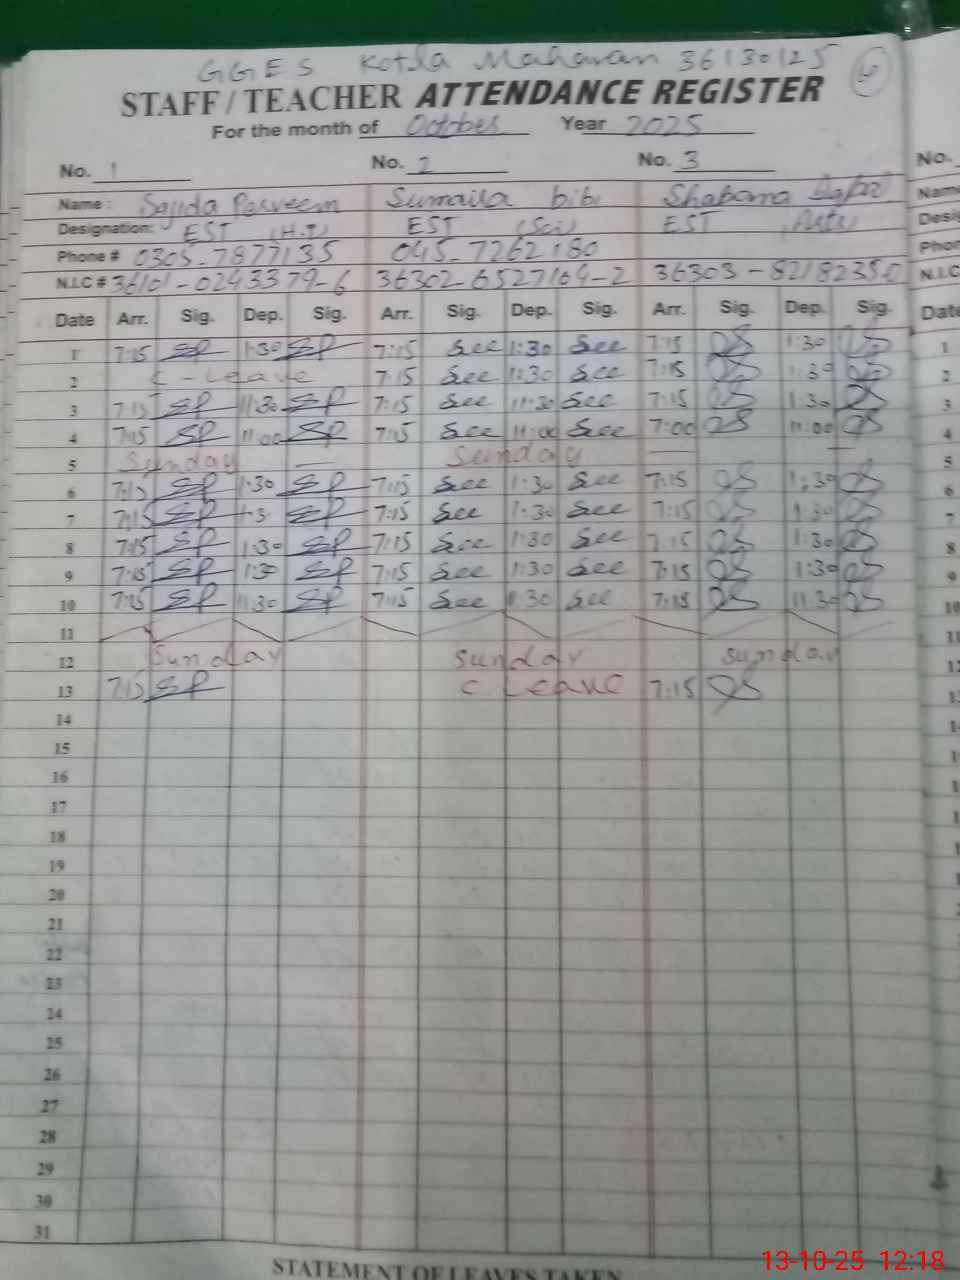 GGES Kotla Maharan 36130125
6
STAFF/TEACHER ATTENDANCE REGISTER
For the month of October Year 2025
No. 1 No. 2 No. 3 No.
Name: Sajida Parveen Sumaila bibi Shabana Name
Designation: EST (H.T) EST (Sci) EST Arts Desig
Phone # 0305-7877135 045-7262180 Phon
N.I.C # 36101-0243379-6 36302-6527164-2 36303-82182350 N.I.C
Date Arr. Sig. Dep. Sig. Arr. Sig. Dep. Sig. Arr. Sig. Dep. Sig. Date
1 7:15 SP 1:30 SP 7:15 See 1:30 See 7:15 QS 1:30 QS 1
2 C-Leave 7:15 See 1:30 See 7:15 QS 1:30 QS 2
3 7:15 SP 11:30 SP 7:15 See 11:30 See 7:15 QS 1:30 QS 3
4 7:15 SP 11:00 SP 7:15 See 11:00 See 7:00 QS 11:00 QS 4
5 Sunday — Sunday — — 5
6 7:15 SP 1:30 SP 7:15 See 1:30 See 7:15 QS 1:30 QS 6
7 7:15 SP 1:3 SP 7:15 See 1:30 See 7:15 QS 1:30 QS 7
8 7:15 SP 1:30 SP 7:15 See 1:30 See 7:15 QS 1:30 QS 8
9 7:15 SP 1:30 SP 7:15 See 1:30 See 7:15 QS 1:30 QS 9
10 7:15 SP 11:30 SP 7:15 See 1:30 See 7:15 QS 11:30 QS 10
11 11
12 Sunday Sunday Sunday 12
13 7:15 SP C Leave 7:15 QS
14
15
16
17
18
19
20
21
22
23
24
25
26
27
28
29
30
31
STATEMENT OF LEAVES TAKEN
13-10-25 12:18